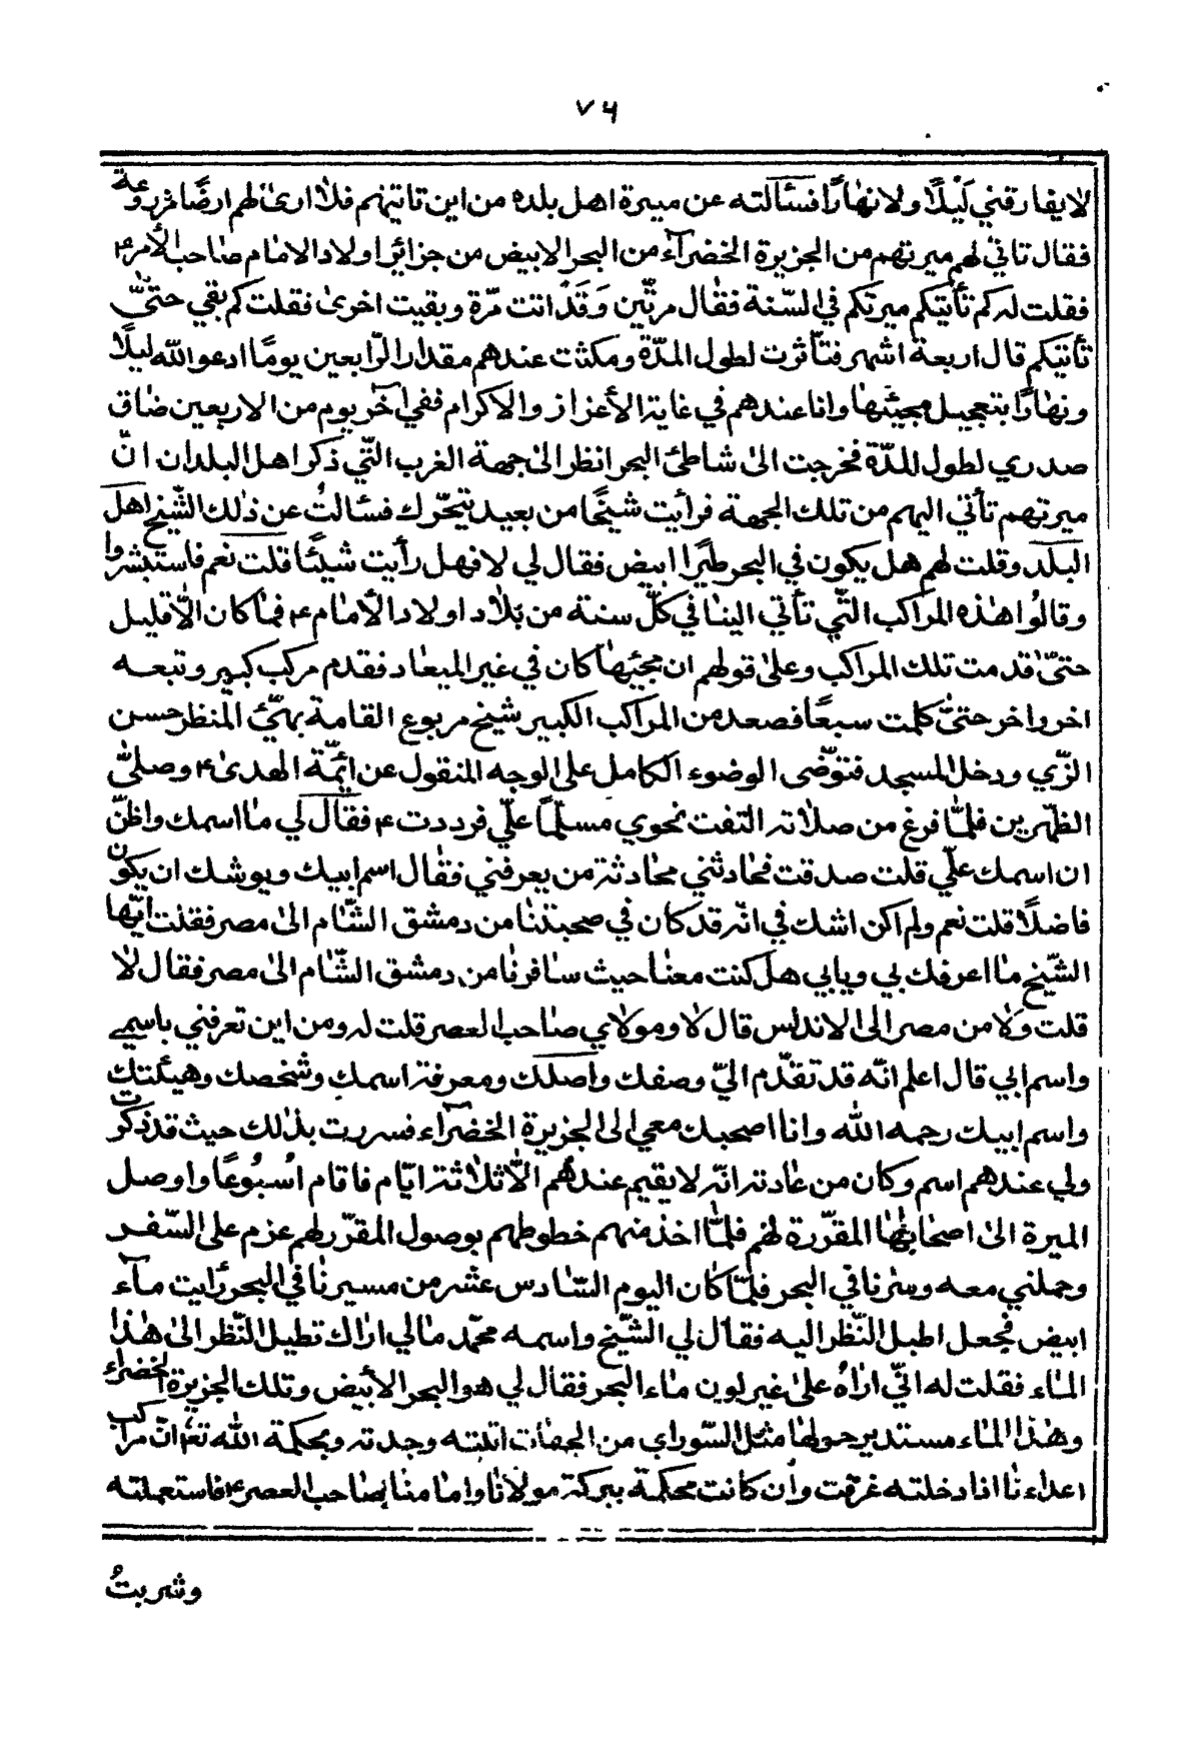 ٧٦
لا يفارقني لَيْلًا ولا نهارًا فسئالته عن ميرة اهل بلده من اين تاتيهم فلا ارىٰ لهم ارضًا مزروعة
فقال تاتي لهم ميرتهم من الجزيرة الخضرآء من البحر الابيض من جزائر اولاد الامام صاحب الأمر ع
فقلت له كم تأتيكم ميرتكم في السّنة فقال مرتّين وَقَدْ اتت مرّة وبقيت اخرىٰ فقلت كم بقي حتىّٰ
تأتيكم قال اربعة اشهر فتأثرت لطول المدّة ومكثت عندهم مقدار الرّابعين يومًا ادعو اللّه ليلًا
ونهارًا بتعجيل مجيئها وانا عندهم في غاية الأعزاز والاكرام ففي آخر يوم من الاربعين ضاق
صدري لطول المدّة فخرجت الىٰ شاطئ البحر انظر الىٰ جهة الغرب التّي ذكر اهل البلدان انّ
ميرتهم تأتي اليهم من تلك الجهة فرأيت شبحًا من بعيد يتحّرك فسئالتُ عن ذٰلك الشّبخ اهل
البلد وقلت لهم هل يكون في البحر طيرًا ابيض فقال لي لا فهل رأيت شيئًا قلت نعم فاستبشروا
وقالُوا هٰذه المراكب التّي تأتي الينا في كلّ سنة من بلاد اولاد الأمام ع فما كان الّا قليل
حتىّٰ قدمت تلك المراكب وعلىٰ قولهم ان مجيئها كان في غير الميعاد فقدم مركب كبير وتبعه
اخر واخر حتىّٰ كملت سبعًا فصعد من المراكب الكبير شيخ مربوع القامة بهيّ المنظر حسن
الزّي ودخل المسجد فتوّضى الوضوء الكامل علىٰ الوجه المنقول عن ائِمّة الهدىٰ ع وصلىّٰ
الظهرين فلمّا فرغ من صلاته التفت نحوي مسلمًا علّي فرددت ع فقال لي ما اسمك واظنّ
ان اسمك علّي قلت صدقت فحادثني محادثة من يعرفني فقال اسم ابيك ويوشك ان يكون
فاضلًا قلت نعم ولم اكن اشك في انّه قد كان في صحبتنا من دمشق الشّام الىٰ مصر فقلت ايّها
الشّيخ ما اعرفك بي ويابي هل كنت معنا حيث سافرنا من دمشق الشّام الىٰ مصر فقال لا
قلت وَلا من مصر الىٰ الاندلس قال لا ومولاي صاحب العصر قلت له ومن اين تعرفني باسمي
واسم ابي قال اعلم انّه قد تقدّم اليّ وصفك واصلك ومعرفة اسمك وشخصك وهيئتك
واسم ابيك رحمه اللّه وانا اصحبك معي الىٰ الجزيرة الخضرآء فسررت بذٰلك حيث قد ذكرت
ولي عندهم اسم وكان من عادته انّه لا يقيم عندهُم الّا ثلاثة ايّام فاقام اُسْبُوعًا واوصل
الميرة الىٰ اصحابها المقرّرة لهم فلمّا اخذ منهم خطوطهم بوصول المقرّر لهم عزم على السّفر
وحملني معه وسرنا في البحر فلمّا كان اليوم السّادس عشر من مسيرنا في البحر رَايت مآء
ابيض فجعل اطيل النّظر اليه فقال لي الشّيخ واسمه محمّد مالي اراك تطيل النّظر الىٰ هٰذا
الماء فقلت له انّي اراهُ علىٰ غير لون ماء البحر فقال لي هو البحر الأبيض وتلك الجزيرة الخضراء
وهٰذا الماء مستدير حولها مثل السّوراي من الجهات اتيته وجدته وبحكمة اللّه تعٰ انّ مراكب
اعداءنا اذا دخلته غرقت وأن كانت محكمة ببركة مولانا وامامنا صاحب العصر ع فاستعملته
وشربتُ